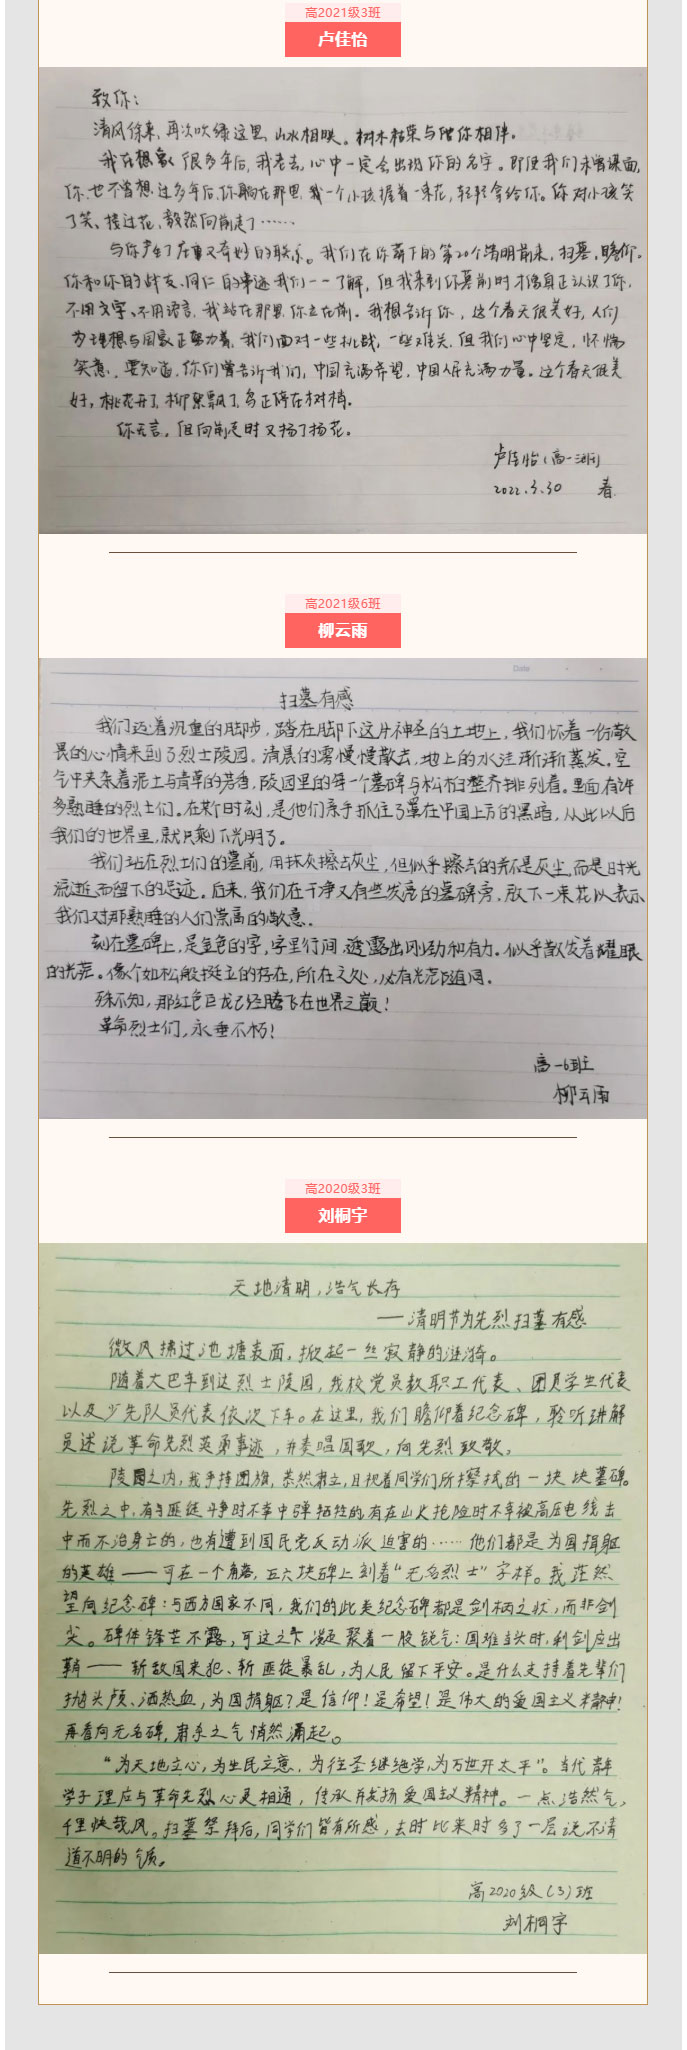 高2021级3班
卢佳怡
致你：
清风徐来，再次吹绿这里，山水相映。树木枯荣与皆你相伴。
我在想象很多年后，我老去，心中一定会出现你的名字。即使我们未曾谋面，
你也不曾想过多年后，你躺在那里，我一个小孩握着一束花，轻轻拿给你。你对小孩笑
了笑，接过花，毅然向前走了……
与你产生了庄重又奇妙的联系。我们在你荫下的第20个清明前来，扫墓，瞻仰。
你和你的战友、同仁的事迹我们一一了解，但我来到你墓前时才像真正认识了你，
不用文字，不用语言，我站在那里，你立在前。我想告诉你，这个春天很美好，人们
为理想与国家正努力着，我们面对一些挑战，一些难关，但我们心中坚定，怀惴
笑意，要知道，你们曾告诉我们，中国充满希望，中国人民充满力量。这个春天很美
好，桃花开了，柳絮飘了，鸟正停在树梢。
你无言，但向前走时又扬了扬花。
卢佳怡（高一3班）
2022.3.30 春
高2021级6班
柳云雨
Date
扫墓有感
我们迈着沉重的脚步，踏在脚下这片神圣的土地上，我们怀着一份敬
畏的心情来到了烈士陵园。清晨的雾慢慢散去，地上的水洼渐渐蒸发。空
气中夹杂着泥土与青草的芳香，陵园里的每一个墓碑与松柏整齐排列着。里面有许
多熟睡的烈士们。在某个时刻，是他们亲手抓住了罩在中国上方的黑暗，从此以后
我们的世界里，就只剩下光明了。
我们站在烈士们的墓前，用抹灰擦去灰尘，但似乎擦去的并不是灰尘，而是时光
流逝而留下的足迹。后来，我们在干净又有些发亮的墓碑旁，放下一束花以表示
我们对那熟睡的人们崇高的敬意。
刻在墓碑上，是金色的字，字里行间，透露出刚劲和有力。似乎散发着耀眼
的光茫。像个如松般挺立的存在，所在之处，必有光茫随同。
殊不知，那红色巨龙已经腾飞在世界之巅！
革命烈士们，永垂不朽！
高一6班
柳云雨
高2020级3班
刘桐宇
天地清明，浩气长存
——清明节为先烈扫墓有感
微风拂过池塘表面，掀起一丝寂静的涟漪。
随着大巴车到达烈士陵园，我校党员教职工代表、团员学生代表
以及少先队员代表依次下车。在这里，我们瞻仰着纪念碑，聆听讲解
员述说革命先烈英勇事迹，并奏唱国歌，向先烈致敬。
陵园之内，我手持团旗，恭然肃立，且把着同学们所擦拭的一块块墓碑。
先烈之中，有与匪徒斗争时不幸中弹牺牲的，有在山火抢险时不幸被高压电线击
中而不治身亡的，也有遭到国民党反动派迫害的……他们都是为国捐躯
的英雄——可在一个角落，五六块碑上刻着“无名烈士”字样。我茫然
望向纪念碑：与西方国家不同，我们的此类纪念碑都是剑柄之状，而非剑
尖。碑体锋芒不露，可这之下凝聚着一股锐气：国难当头时，利剑应出
鞘——斩敌国来犯、斩匪徒暴乱，为人民留下平安。是什么支持着先辈们
抛头颅、洒热血，为国捐躯？是信仰！是希望！是伟大的爱国主义精神！
再看向无名碑，肃杀之气悄然涌起。
“为天地立心，为生民立意，为往圣继绝学，为万世开太平”。当代青年
学子理应与革命先烈心灵相通，传承并发扬爱国主义精神。一点浩然气，
千里快哉风。扫墓祭拜后，同学们皆有所感，去时比来时多了一层说不清
道不明的气质。
高2020级（3）班
刘桐宇